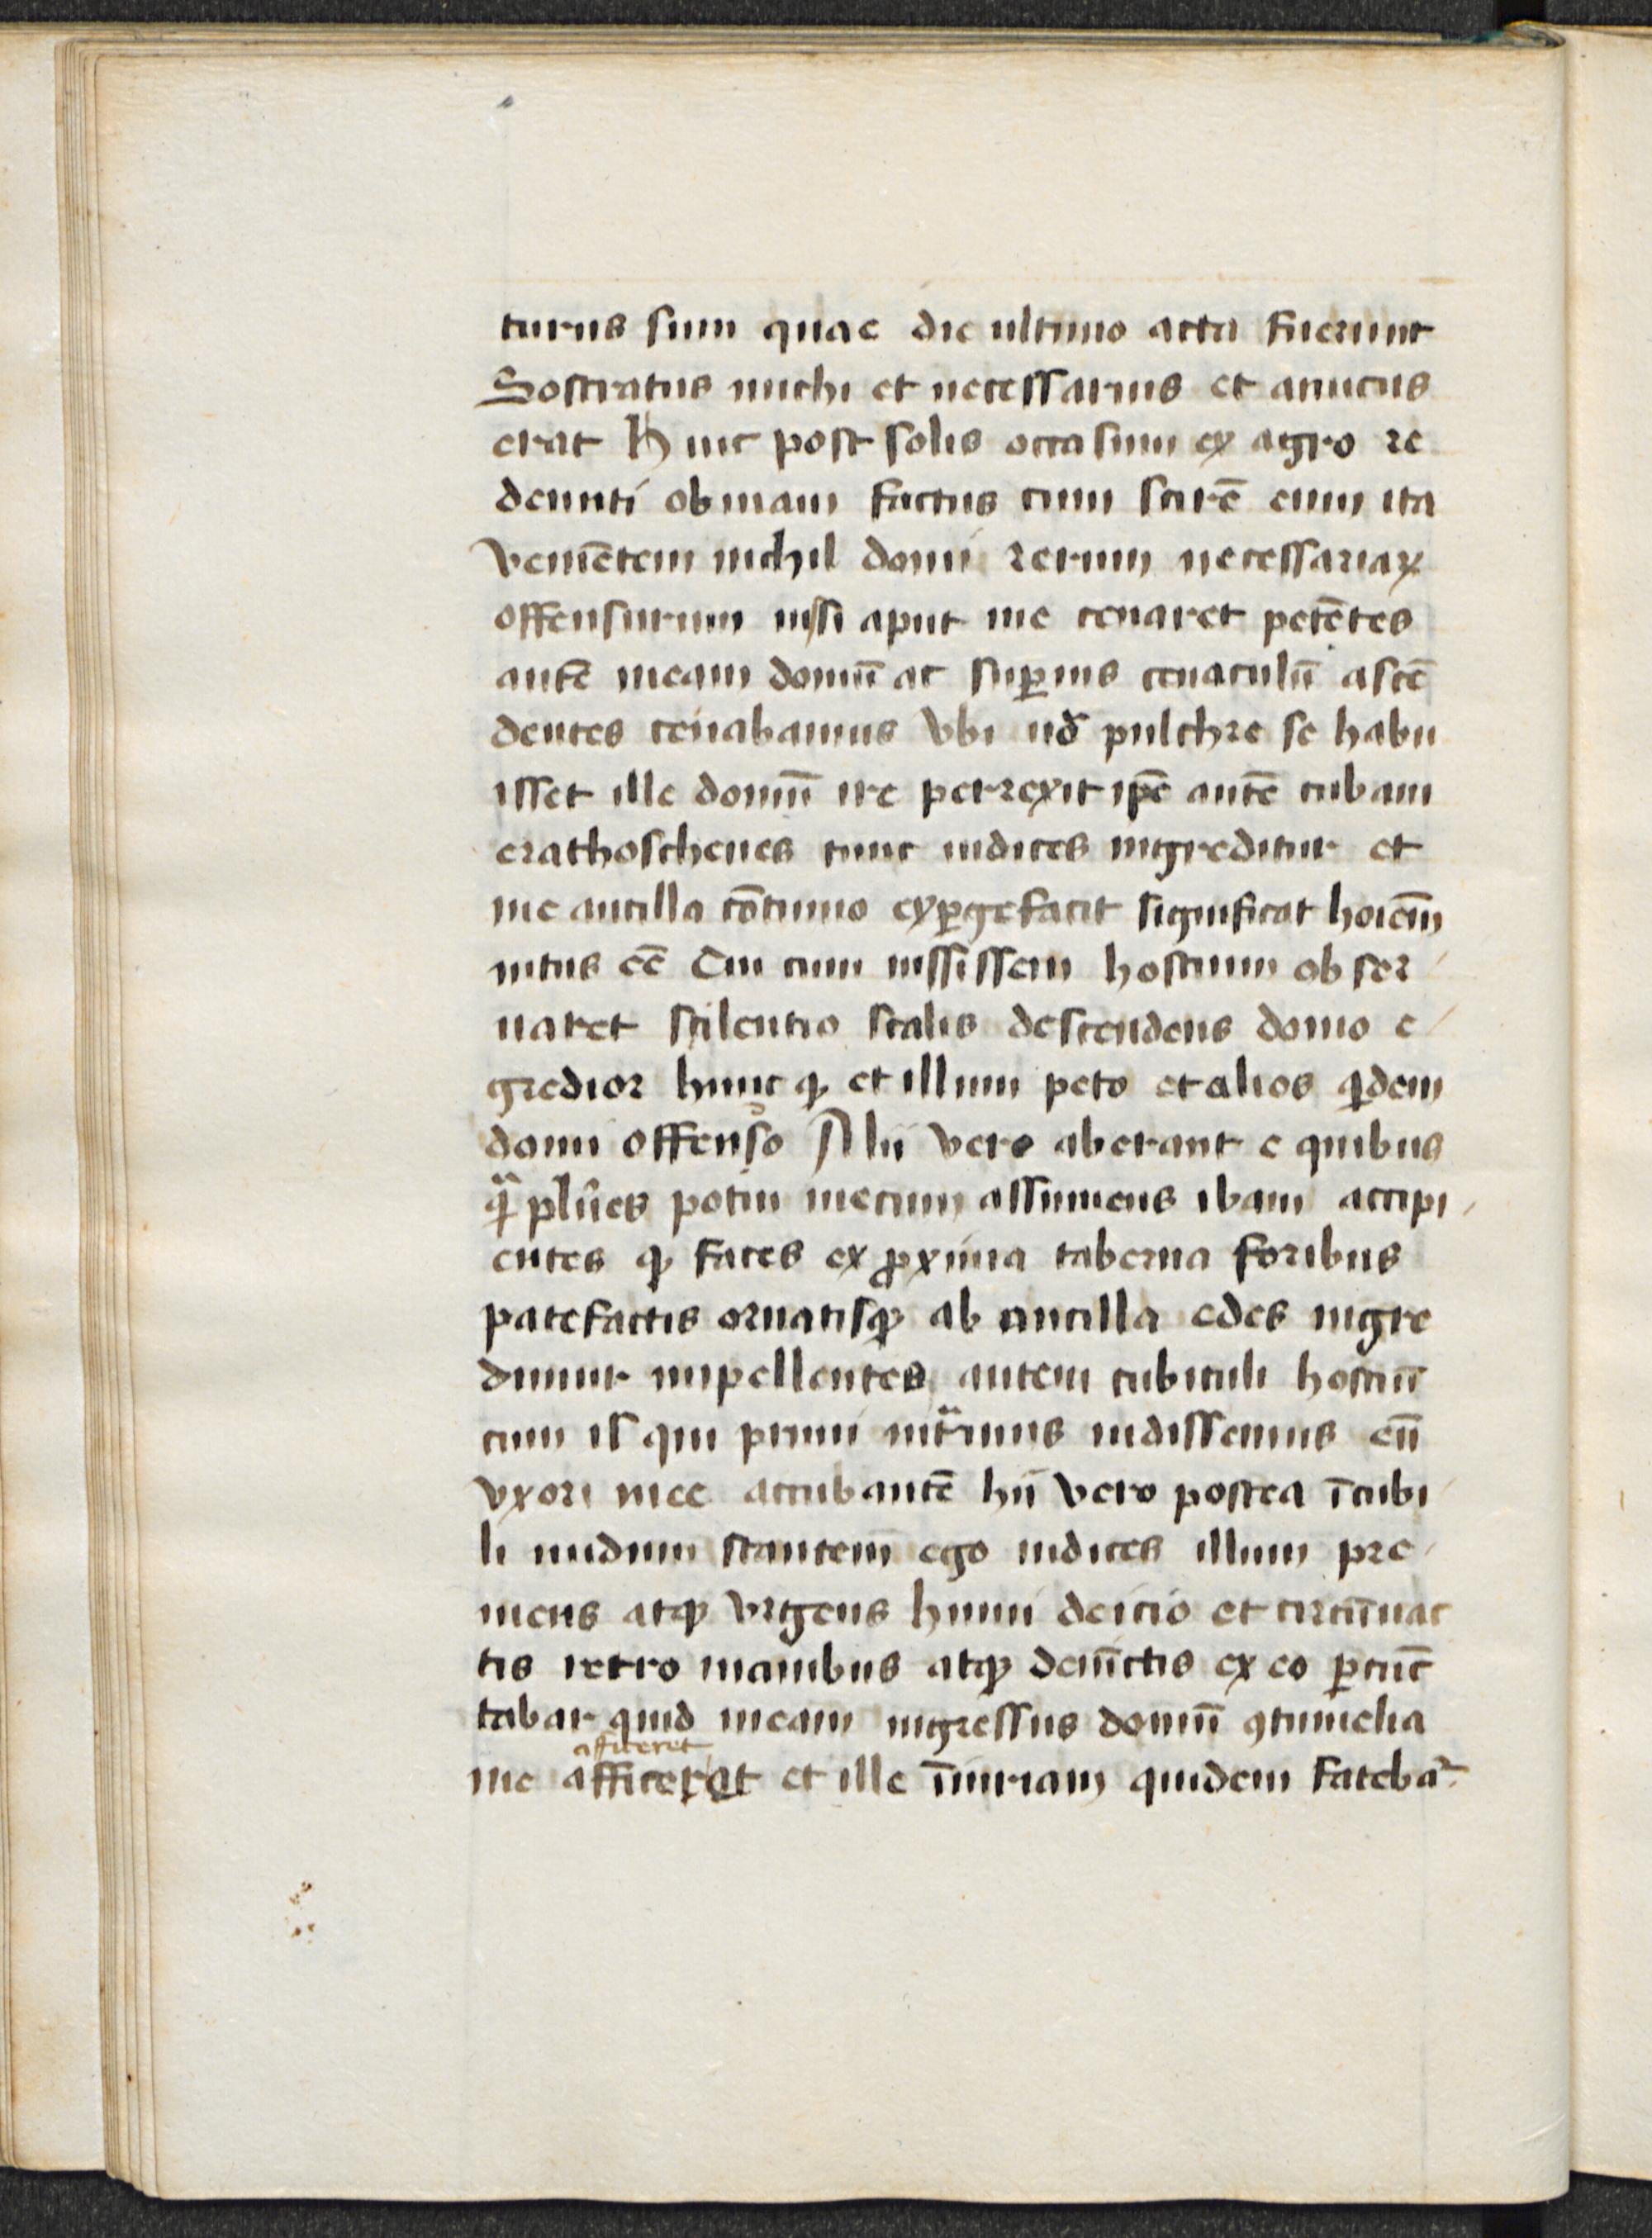 turus sum quae die ultimo acta fuerunt
Sostratus michi et necessarius et amicus
erat Huic post solis occasum ex agro re
deunti obuiam factus cum scirē eum ita
veniētem nichil domi rerum necessariaꝝ
offensurum nisi aput me cenaret petētes
autē meam domū ac suꝑius cenaculū ascē
dentes cenabamus vbi uō pulchre se habu
isset ille domū ire perrexit ip̄e autē cubam
erathosthenes tunc iudices ingreditur et
me ancilla cōtinuo exꝑgefacit significat hoiēm
intus eē Cui cum iussissem hostium obser
uaret scilentio scalis descendens domo e
gredior hunc qꝫ et illum peto et alios qͥdem
domi offenso Alii vero aberant e quibus
qᵃ plūes potui mecum assumens ibam accipi
entes qꝫ faces ex ꝓxima taberna foribus
patefactis ornatisqꝫ ab ancilla edes ingre
dimur impellentes autem cubiculi hostiū
cum is qui primi intᵃuimus uidissemus eū
vxori mee accubantē hii vero postea ī cubi
li nudum stantem ego iudices illum pre
mens atqꝫ vrgens humi deicio et circūuac
tis retro manibus atqꝫ deuīctis ex eo ꝑcūc
tabar quid meam ingressus domū ꝯtumelia
afficeret
me afficerat et ille īiuriam quidem fatebaͬ